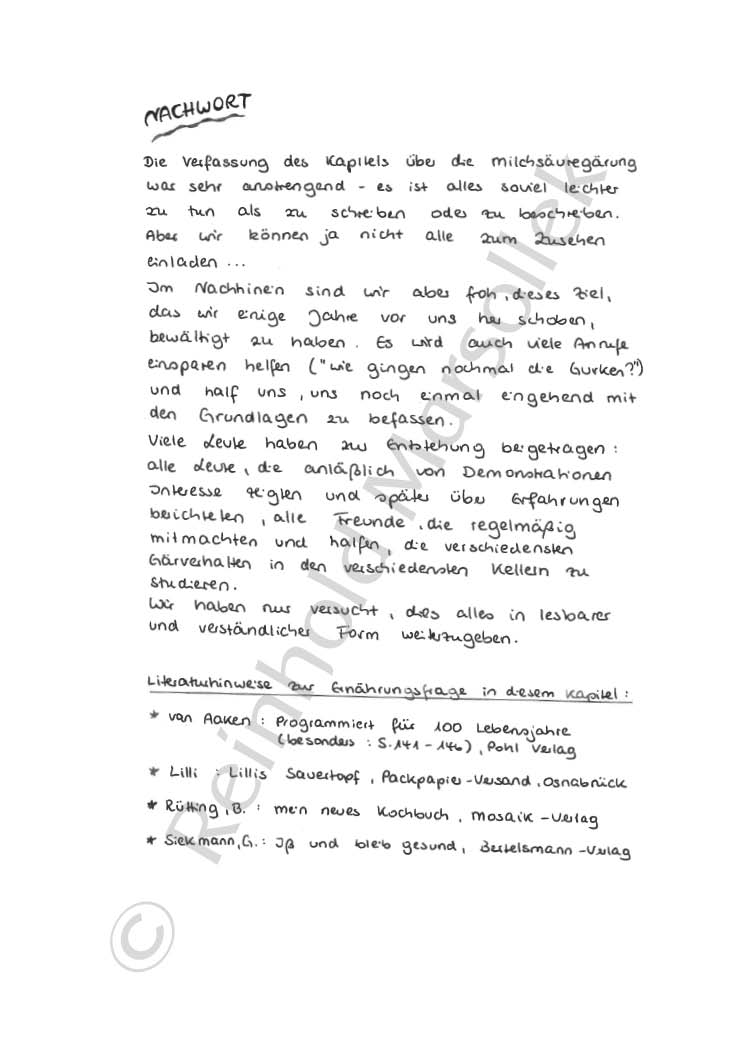 NACHWORT
Die Verfassung des Kapitels über die Milchsäuregärung
war sehr anstrengend - es ist alles soviel leichter
zu tun als zu schreiben oder zu beschreiben.
Aber wir können ja nicht alle zum Zusehen
einladen ...
Im Nachhinein sind wir aber froh, dieses Ziel,
das wir einige Jahre vor uns her schoben,
bewältigt zu haben. Es wird auch viele Anrufe
einsparen helfen ("wie gingen nochmal die Gurken?")
und half uns, uns noch einmal eingehend mit
den Grundlagen zu befassen.
Viele Leute haben zur Entstehung beigetragen:
alle Leute, die anläßlich von Demonstrationen
Interesse zeigten und später über Erfahrungen
berichteten, alle Freunde, die regelmäßig
mitmachten und halfen, die verschiedensten
Gärverhalten in den verschiedensten Kellern zu
studieren.
Wir haben nur versucht, dies alles in lesbarer
und verständlicher Form weiterzugeben.
Literaturhinweise zur Ernährungsfrage in diesem Kapitel:
* van Aaken: Programmiert für 100 Lebensjahre
(besonders: S. 141 - 146), Pohl Verlag
* Lilli: Lillis Sauertopf, Packpapier-Versand, Osnabrück
* Rütting, B.: mein neues Kochbuch, Mosaik-Verlag
* Siekmann, G.: Iß und bleib gesund, Bertelsmann-Verlag
© Reinhold Marsollek